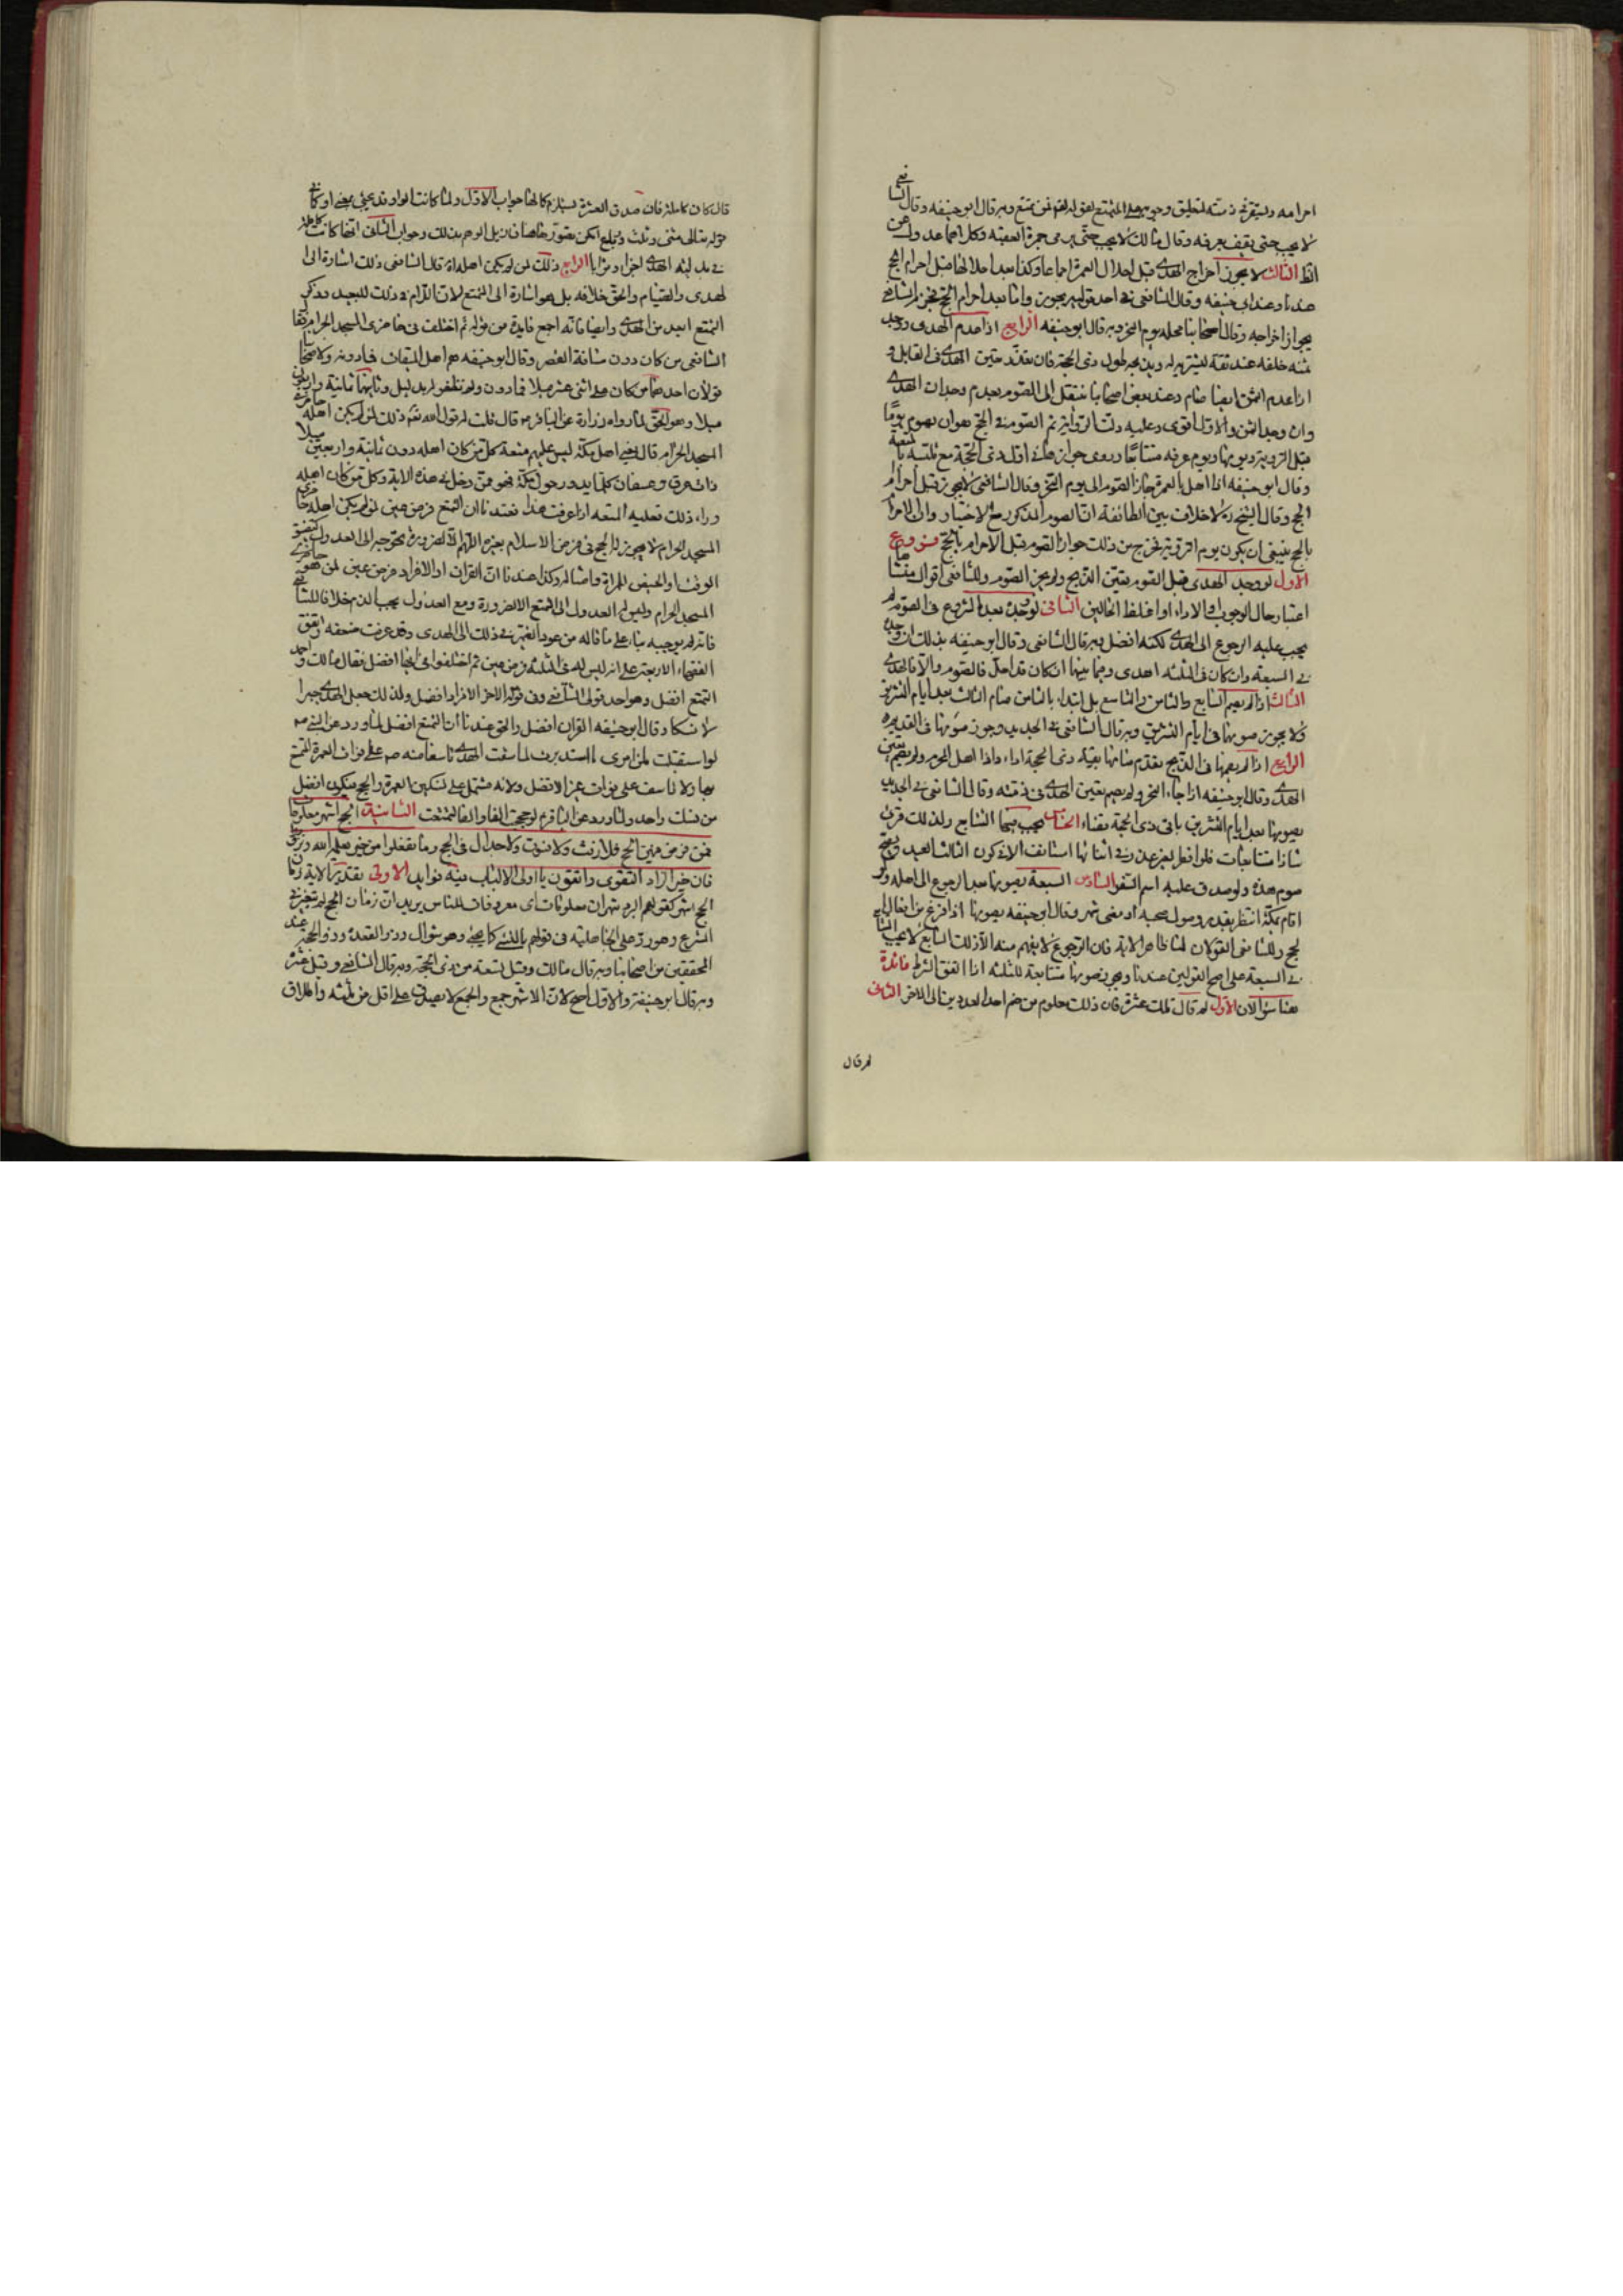 احرامه وليتفرغ ذمته لتعليق وجوبه على المتمتع بقوله فمن تمتع وبه قال ابو حنيفه وقال الشافعى
لا يجب حتى يقف بعرفه وقال مالك لا يجب حتى يرمى جمرة العقبه وكل اجماعه
الثالث لا يجوز اخراج الهدى قبل احلال العمرة اجماعا وكذا بعد احلالها قبل احرام الحج
عندنا وعند ابى حنيفه وقال الشافعى فى احد قوليه يجوز واما بعد احرام الحج فجوز الشافعى
يجواز اخراجه وقال اصحابنا محله يوم النحر وبه قال ابو حنيفه الرابع اذا عدم الهدى ووجد
ثمنه خلفه عند ثقة ليشتريه له ويذبحه طول ذى الحجة فان تعذر حتين الهدى فى القابل و
اذا عدم الثمن ايضا صام وعند بعض اصحابنا ينتقل الى الصوم بعدم وجدان الهدى
وان وجد الثمن والاول اقوى وعليه دلت الرواية ثم الصوم فى الحج هو ان يصوم يوما
قبل التروية ويومها ويوم عرفه متتابعا وروى جوازها فى اول ذى الحجة مع تلبسه بالمتعة
وقال ابو حنيفه اذا اهل بالعمرة جاز الصوم الى يوم النحر وقال الشافعى لا يجوز قبل احرام
الحج وقال الشيخ ره لا خلاف بين الطائفة ان الصوم المذكور مع الاختيار وان الاحرام
بالحج ينبغى ان يكون يوم التروية فخرج من ذلك جواز الصوم قبل الاحرام بالحج فروع
الاول لو وجد الهدى قبل الصوم يتعين الذبح ولم يجز الصوم وللشافعى اقوال منشأها
اعتبار حال الوجوب او الاداء او اغلظ الحالين الثانى لو وجده بعد الشروع فى الصوم لم
يجب عليه الرجوع الى الهدى لكنه افضل وبه قال الشافعى وقال ابو حنيفه بذلك ان وجده
فى السبعة وان كان فى الثلثه اهدى وفيما بينهما ان كان قد احل فالصوم والا فالهدى
الثالث اذا لم يصم السابع والثامن والتاسع بل ابتداء بالثامن صام الثالث بعد ايام التشريق
ولا يجوز صومها فى ايام التشريق وبه قال الشافعى فى الجديد وجوز صومها فى القديم
الرابع اذا لم يصمها فى الذبح تقدم صامها بقية ذى الحجة اداء واذا اهل المحرم ولم يصم تعين
الهدى وقال ابو حنيفه اذا جاء النحر ولم يصم تعين الهدى فى ذمته وقال الشافعى فى الجديد
يصومها بعد ايام التشريق باقى ذى الحجة قضاء الخامس يجب فيها التتابع ولذلك قرئ
شاذا متتابعات فلو افطر لغير عذر فى اثنائها استانف الا ان يكون الثالث العيد ويصح
صوم هذه ولو صدق عليه اسم السفر السادس السبعة يصومها بعد الرجوع الى اهله ولو
اقام بمكة انتظر بقدر وصول صحبه او مضى شهر وقال ابو حنيفه يصومها اذا فرغ من افعال
الحج وللشافعى القولان لنا ظاهر الاية فان الرجوع لا يفهم منه الا ذلك السابع لا يجب التتابع
فى السبعة على اصح القولين عندنا ويجوز صومها متتابعة للثلثه اذا اتفق الشرط فائدة
هنا سؤالان الاول لم قال تلك عشرة فان ذلك معلوم من ضم احد العددين الى الاخر الثانى
لم قال
قال كان كاملة فان صدق العشرة يستلزم كمالها جواب الاول ولما كانت الواو قد تجئ بمعنى او كما فى
قوله تعالى مثنى وثلث ورباع امكن تصورها هنا فازيل الوهم بذلك وجواب الثانى انها كاملة
فى بدلية الهدى اجزاء وثوابا الرابع ذلك لمن لم يكن اهله اه قال الشافعى ذلك اشارة الى
الهدى والصيام والحق خلافه بل هو اشارة الى التمتع لان اللام فى ذلك للبعيد وذكر
التمتع ابعد من الهدى وايضا فانه اجمع فايدة من قوله ثم اختلف فى حاضرى المسجد الحرام فقال
الشافعى من كان دون مسافة القصر وقال ابو حنيفه هم اهل الميقات فما دونه ولاصحابنا
قولان احدهما من كان على اثنى عشر ميلا فما دون ولم نظفر له بدليل وثانيهما ثمانية واربعين
ميلا وهو الحق لما رواه زرارة عن الباقر م قال قلت له قول الله تعالى ذلك لمن لم يكن اهله حاضرى
المسجد الحرام قال يعنى اهل مكة ليس عليهم متعة كل من كان اهله دون ثمانية واربعين ميلا
ذات عرق وعسفان كلما يدور حول مكة فهو ممن دخل فى هذه الاية وكل من كان اهله
وراء ذلك فعليه المتعه اذا عرفت هذا فعندنا ان التمتع فرض معين لمن لم يكن اهله حاضرى
المسجد الحرام لا يجوز له الحج فى فرض الاسلام بغيره اللهم الا لضرورة تحوجه الى العدول كضيق
الوقت او الحيض للمراة وامثاله وكذا عندنا ان القران او الافراد فرض عين لمن هو حاضرى
المسجد الحرام وليس له العدول الى التمتع الا لضرورة ومع العدول يجب الدم خلافا للشافعى
فانه لم يوجبه بناء على ما قاله من عود الضمير فى ذلك الى الهدى وقد عرفت ضعفه واتفق
الفقهاء الاربعة على انه ليس له فى الثلثه فرض معين ثم اختلفوا فى ايها افضل فقال مالك واحمد
التمتع افضل وهو احد قولى الشافعى وفى قوله الاخر الافراد افضل ولذلك جعل الهدى جبرا
لا نسكا وقال ابو حنيفه القران افضل والحق عندنا ان التمتع افضل لما ورد عن النبى صم
لو استقبلت من امرى ما استدبرت لما سقت الهدى تاسفا منه صم على فوات العمرة المتمتع
بها ولا تاسف على فوات غير الافضل ولانه مشتمل على نسكين العمرة والحج فيكون افضل
من نسك واحد ولما ورد عن الباقر م لو حججت الفا والفا لتمتعت الثانية الحج اشهر معلومات
فمن فرض فيهن الحج فلا رفث ولا فسوق ولا جدال فى الحج وما تفعلوا من خير يعلمه الله وتزودوا
فان خير الزاد التقوى واتقون يا اولى الالباب فيه فوايد الاولى تقدير الاية زمان
الحج اشهر كقولهم البرد شهران معلومات اى معروفات للناس يريد ان زمان الحج لم يتغير فى
الشرع وهو رد على الجاهلية فى قولهم بالنسئ كما يجئ وهو شوال وذو القعدة وذو الحجة عند
المحققين من اصحابنا وبه قال مالك وقيل تسعة من ذى الحجة وبه قال الشافعى وقيل عشر
وبه قال ابو حنيفة والاول اصح لان الاشهر جمع والجمع لا يصدق على اقل من ثلثه واطلاق